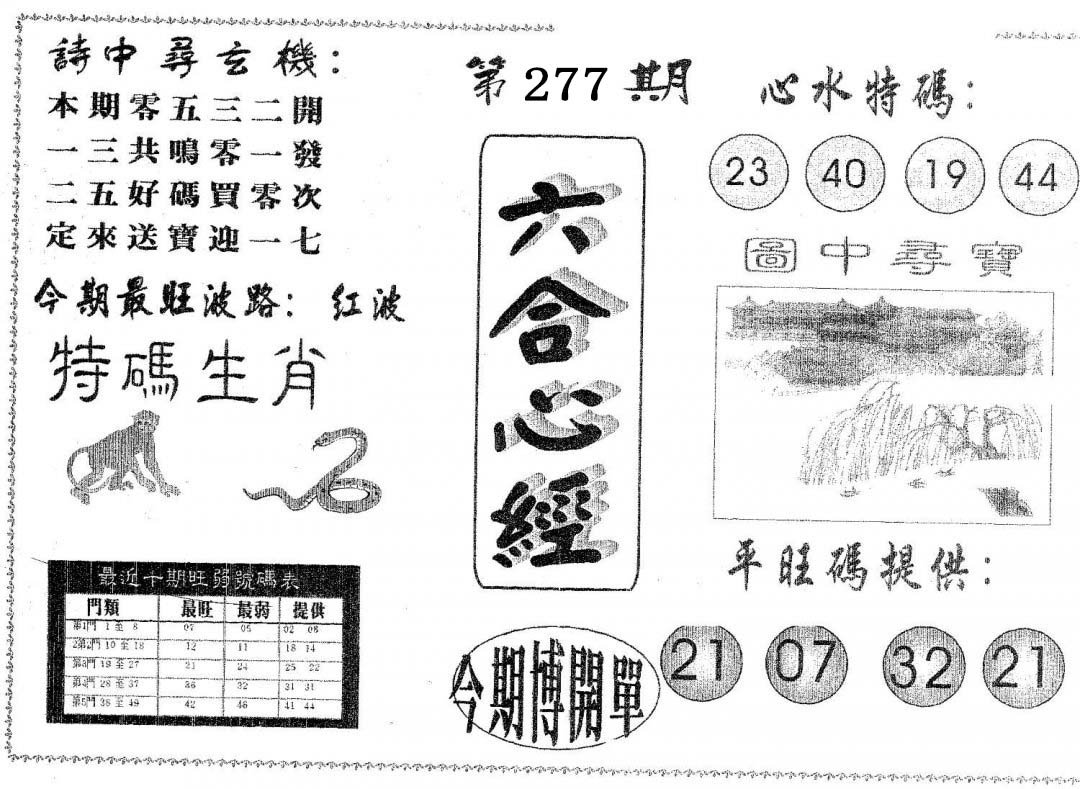 詩中尋玄機：
本期零五三二開
一三共鳴零一發
二五好碼買零次
定來送寶迎一七
今期最旺波路：紅波
特碼生肖
最近十期旺弱號碼表
門類 最旺 最弱 提供
第1門 1 至 8 07 05 02 08
2第2門 10 至 18 12 11 18 14
第3門 19 至 27 21 24 25 22
第4門 28 至 37 36 32 31 31
第5門 38 至 49 42 46 41 44
第 277 期
六合心經
今期博開單
心水特碼：
23 40 19 44
圖中尋寶
平旺碼提供：
21 07 32 21